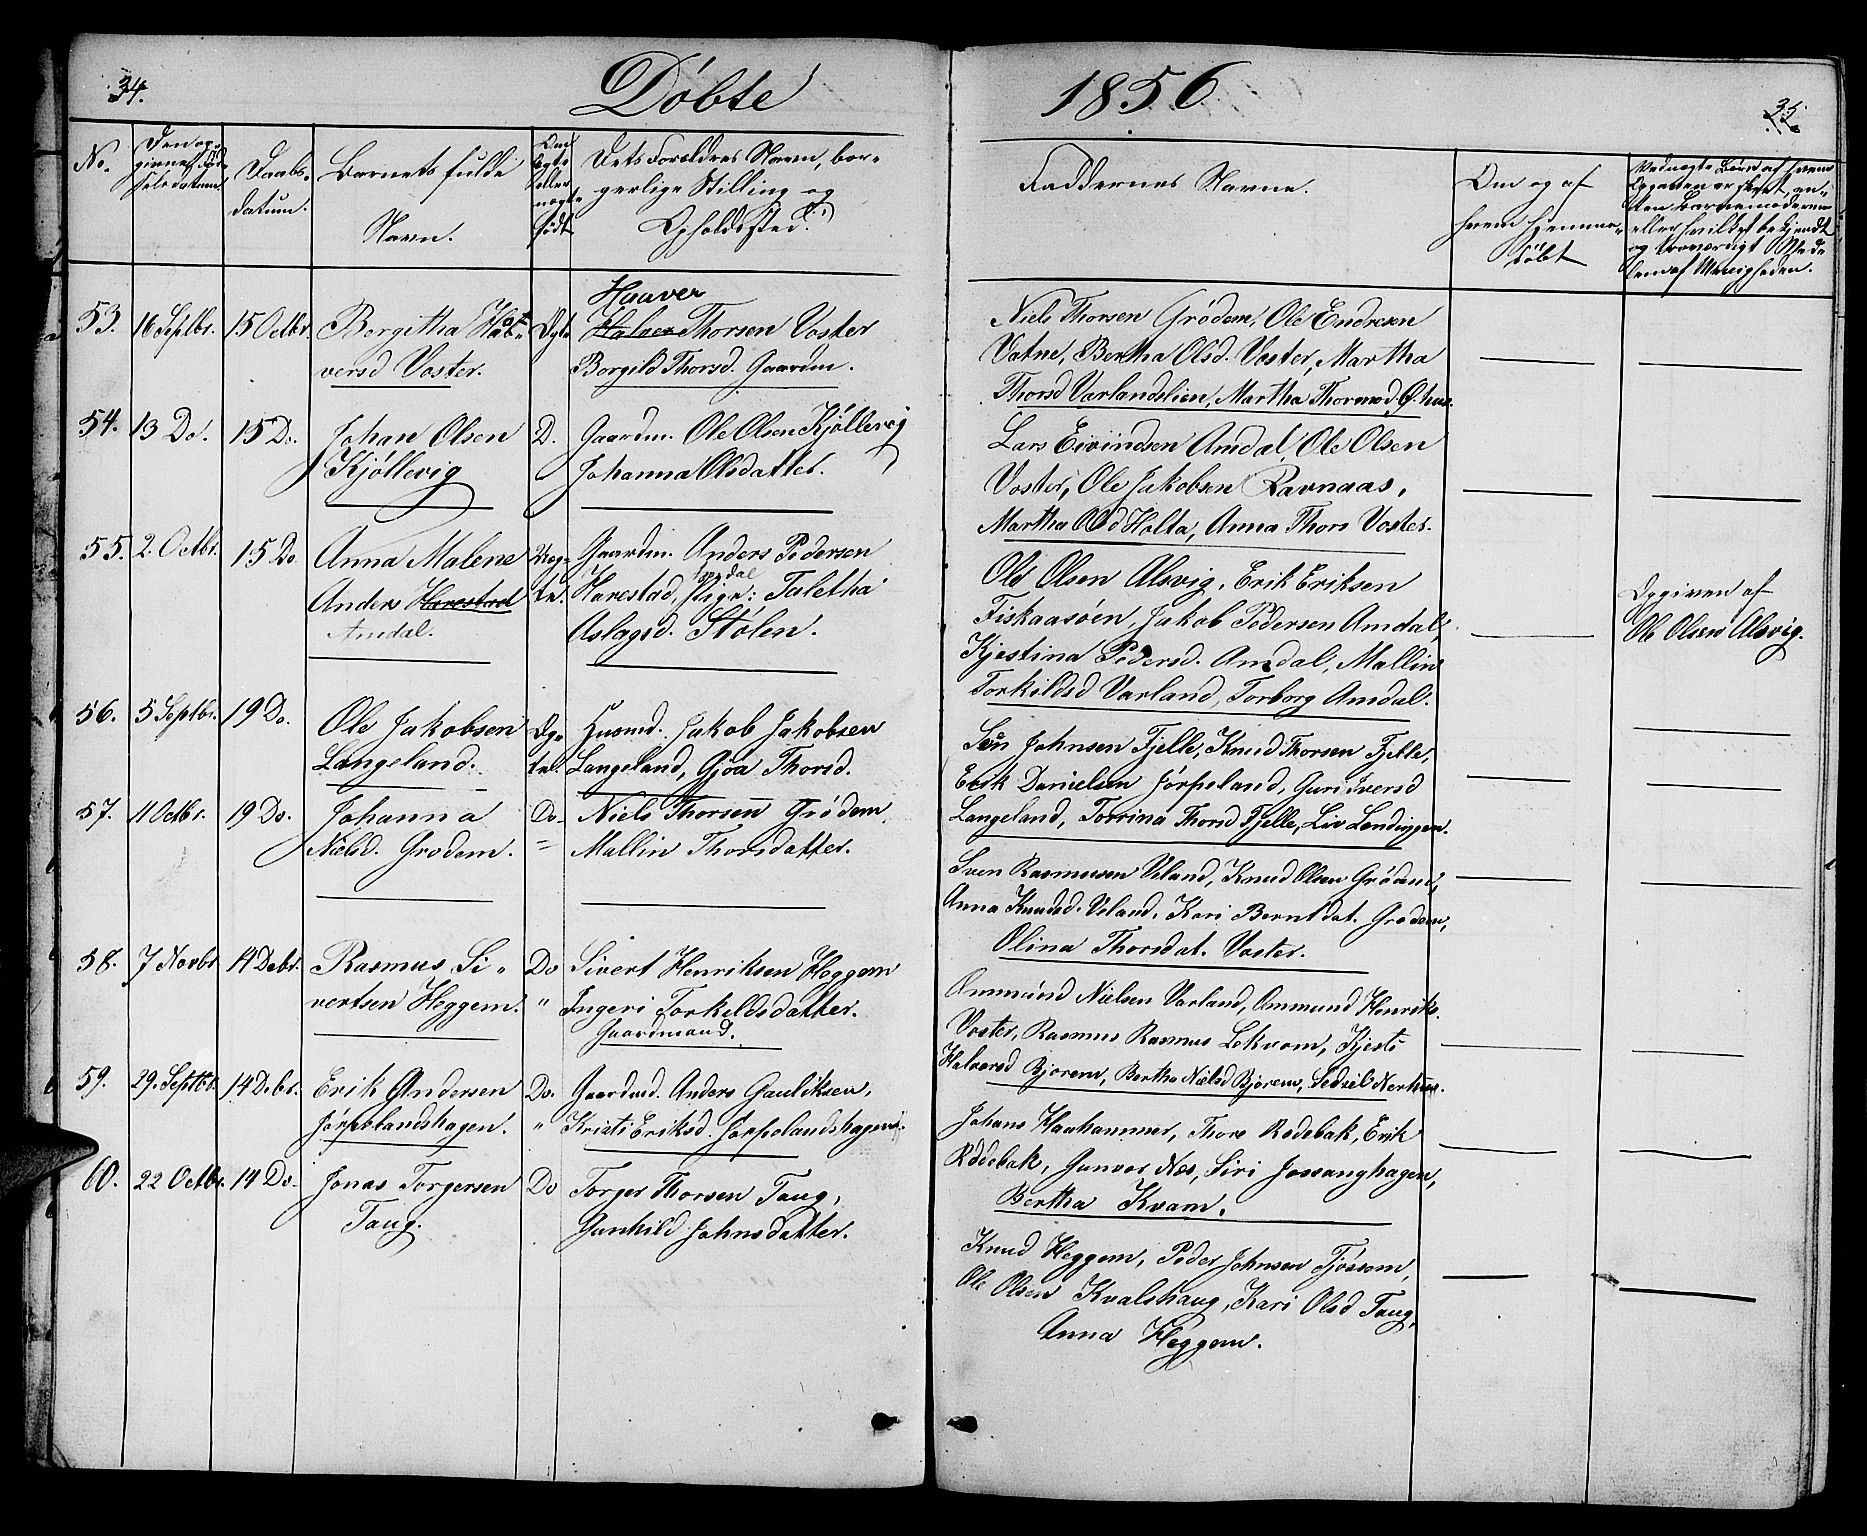 34.
Döbte
1856
35.
No.
Den op-
givne Föd-
selsdatum
Daabs-
datum.
Barnets fulde
Navn.
Om
Ægte
eller
uægte
födt
Dets Forældres Navn, bor-
gerlige Stilling og
Opholdssted.
Faddernes Navne.
Om og af
hvem hjemme-
döbt
Ved uægte Börn af hvem
Opgaven er skeet, en-
ten Barnemoderen
eller hvilket bekjendt
og troværdigt Med-
lem af Menigheden.
53. 16 Septbr. 15 Octbr. Bergitha Hal-
versd Voster.
Ægte
Haaver
Halver Thorsen Voster
Borgild Thorsd. Gaardm.
Niels Thorsen Grödem, Ole Endresen
Vatne, Bertha Olsd. Voster, Martha
Thorsd Varlandslien, Martha Thormod
54. 13 Do. 15 Do. Johan Olsen
Kjöllevig
D.
Gaardm. Ole Olsen Kjöllevig
Johanna Olsdatter.
Lars Eivindsen Amdal, Ole Olsen
Voster, Ole Jakobsen Ravnaas,
Martha Olsd Holta, Anna Thors Voster.
55. 2. Octbr. 15 Do. Anna Malene
Anders Harestad
Amdal.
Uæg-
te.
Gaardm. Anders Pedersen
Harestad, Pige: Taletha
Aslagsd. Stölen.
Ole Olsen Alsvig, Erik Eriksen
Fiskaasöen, Jakob Pedersen Amdal,
Kjestina Pedersd. Amdal, Mallin
Torkildsd Varland, Torborg Amdal.
Opgiven af
Ole Olsen Alsvig.
56. 5 Septbr. 19 Do. Ole Jakobsen
Langeland.
Æg-
te.
Husmd. Jakob Jakobsen
Langeland, Gjoa Thorsd.
Johnsen Fjelle, Knud Thorsen Fjelle,
Erik Danielsen Jörpeland, Guri Iversd
Langeland, Torrina Thorsd Fjelle, Liv Lendingen.
57. 11 Octbr. 19 Do. Johanna
Nielsd. Grodem.
Do-
Niels Thorsen Grödem
Mallin Thorsdatter.
Sven Rasmusen Veland, Knud Olsen Grödem,
Anna Knudsd. Veland, Kari Berntdat. Grodem,
Olina Thorsdat. Voster.
58. 7 Novbr 14 Debr. Rasmus Si-
vertsen Heggem.
Do
"
Sivert Henriksen Heggem
Ingeri Torkeldsdatter.
Gaardmand.
Ommund Nielsen Varland, Ommund Henriks.
Voster, Rasmus Rasmus Lekvam, Kjesti
Halversd Bjorem, Bertha Nielsd Bjorem, Sedsel Nerhus.
59. 29. Septbr. 14 Debr. Erik Andersen
Jörpelandshagen.
Do.
"
Gaardmd. Anders Gauliksen,
Kristi Eriksd. Jorpelandshagen.
Johans Haahammer, Thore Rodebak, Erik
Rödebak, Gunvor Næs, Siri Jossanghagen,
Bertha Kvam.
60. 22 Octbr. 14 Do. Jonas Torgersen
Taug.
Do
Torger Thorsen Taug,
Gunhild Johnsdatter.
Knud Heggem, Peder Johnsen Tjössem,
Ole Olsen Kvalshaug, Kari Olsd Taug,
Anna Heggem.